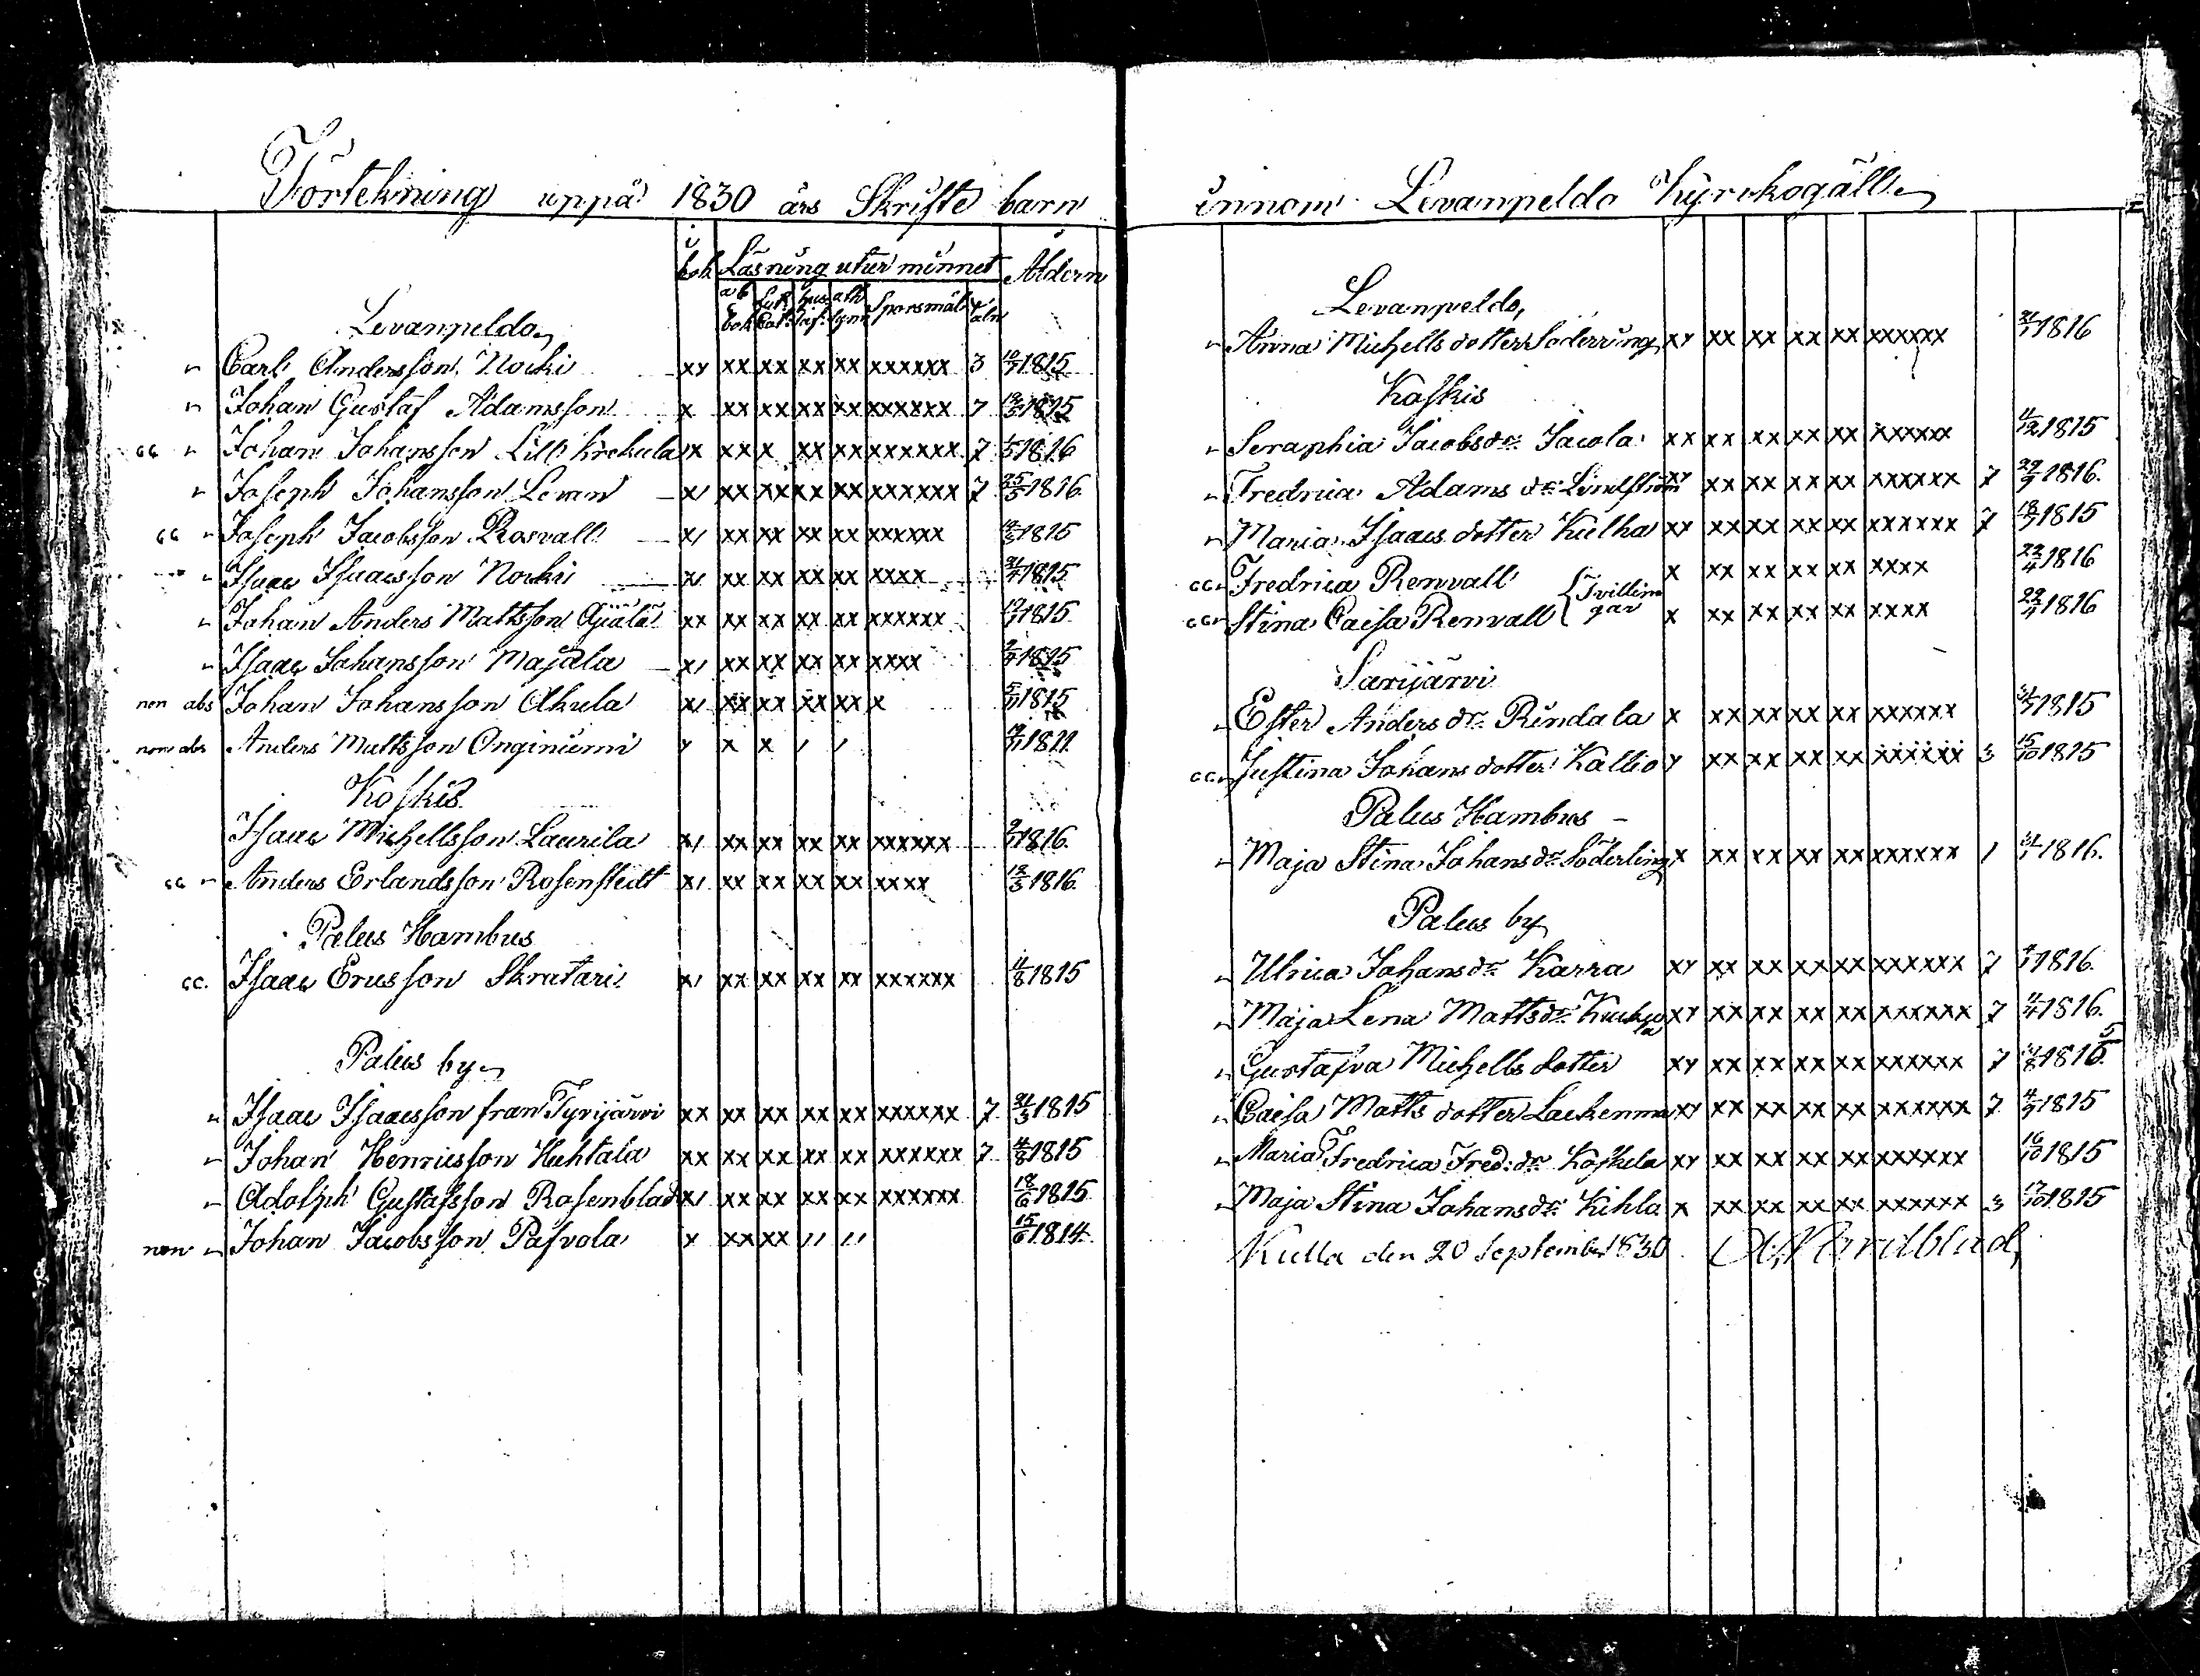 Förtekning uppå 1830 års Skrifte barn
i bok Läsning utur minnet Åldern
ab bok Lut. Cat. hus taf. ath. sym Sporsmål
Levanpeldo,
n Carl Andersson Nocki xx xx xx xx xx xxxxxx 3 1815
n Johan Gustaf Adamsson x xx xx xx xx xxxxxxx 7 1815
cc n Johan Johansson Lill Krekula xx x xx xx xxxxxxx 7 1816
n Joseph Johansson Levan x xx xx xx xx xxxxxxx 7 25/5 1816
cc n Joseph Jacobsson Rosvall x xx xx xx xx xxxxxx 1815
n Isaac Isaacsson Nocki x xx xx xx xx xxxx 1815
n Johan Anders Mattsson xx xx xx xx xx xxxxxx 1815
n Isaac Johansson Majala x xx xx xx xx xxxx 1815
non abs Johan Johansson Akula x xx xx xx xx x 1815
non abs Anders Mattsson Onginiemi x x
Koskis
Isaac Michellsson Laurila x xx xx xx xx xxxxxx 1816
cc n Anders Erlandsson Rosenstedt x xx xx xx xx xxxx 12/3 1816
Palus Hambus
cc. Isaac Ericsson Skratari x xx xx xx xx xxxxxx 11/8 1815
Palus by
n Isaac Isaacsson fran Tyrijärvi xx xx xx xx xx xxxxxx 7 21/3 1815
n Johan Henricsson Huhtala xx xx xx xx xx xxxxxx 7 4/8 1815
n Adolph Gustafsson Rosenblad x xx xx xx xx xxxxxx 18/6 1815
non n Johan Jacobsson Påfvola x xx xx " " 15/6 1814
innom Levanpeldo Kyrckogäll
Levanpeldo,
n Anna Michells dotter Söderring xx xx xx xx xx xxxxxx 1816
Koskis
n Seraphia Jacobs dr Jacola xx xx xx xx xx xxxxxx 4/12 1815
n Fredrica Adams dr Lindström xx xx xx xx xx xxxxxx 7 29/9 1816.
n Maria Isaacs dotter Kulha xx xx xx xx xx xxxxxx 7 1815
cc n Fredrica Renvall { Tvillin x xx xx xx xx xxxx 22/4 1816
cc n Stina Caisa Renvall gar x xx xx xx xx xxxx 22/4 1816
Sarijärvi
n Ester Anders dr Rindala x xx xx xx xx xxxxxx 1815
cc n Justina Johans dotter Kallio x xx xx xx xx xxxxxx 3 15/10 1815
Palus Hambus -
n Maja Stina Johans dr Söderling x xx xx xx xx xxxxxx 1 1816.
Palus by
n Ulrica Johans dr Karra xx xx xx xx xx xxxxxx 7 1816.
n Maja Lena Matts dr xx xx xx xx xx xxxxxx 7 1816.
n Gustafva Michells dotter xx xx xx xx xx xxxxxx 7 1815
n Caisa Matts dotter xx xx xx xx xx xxxxxx 7 4/9 1815
n Maria Fredrica Fred: dr Koskela xx xx xx xx xx xxxxxx 16/10 1815
n Maja Stina Johans dr Kihla x xx xx xx xx xxxxxx 3 17/10 1815
Kulla den 20 September 1830